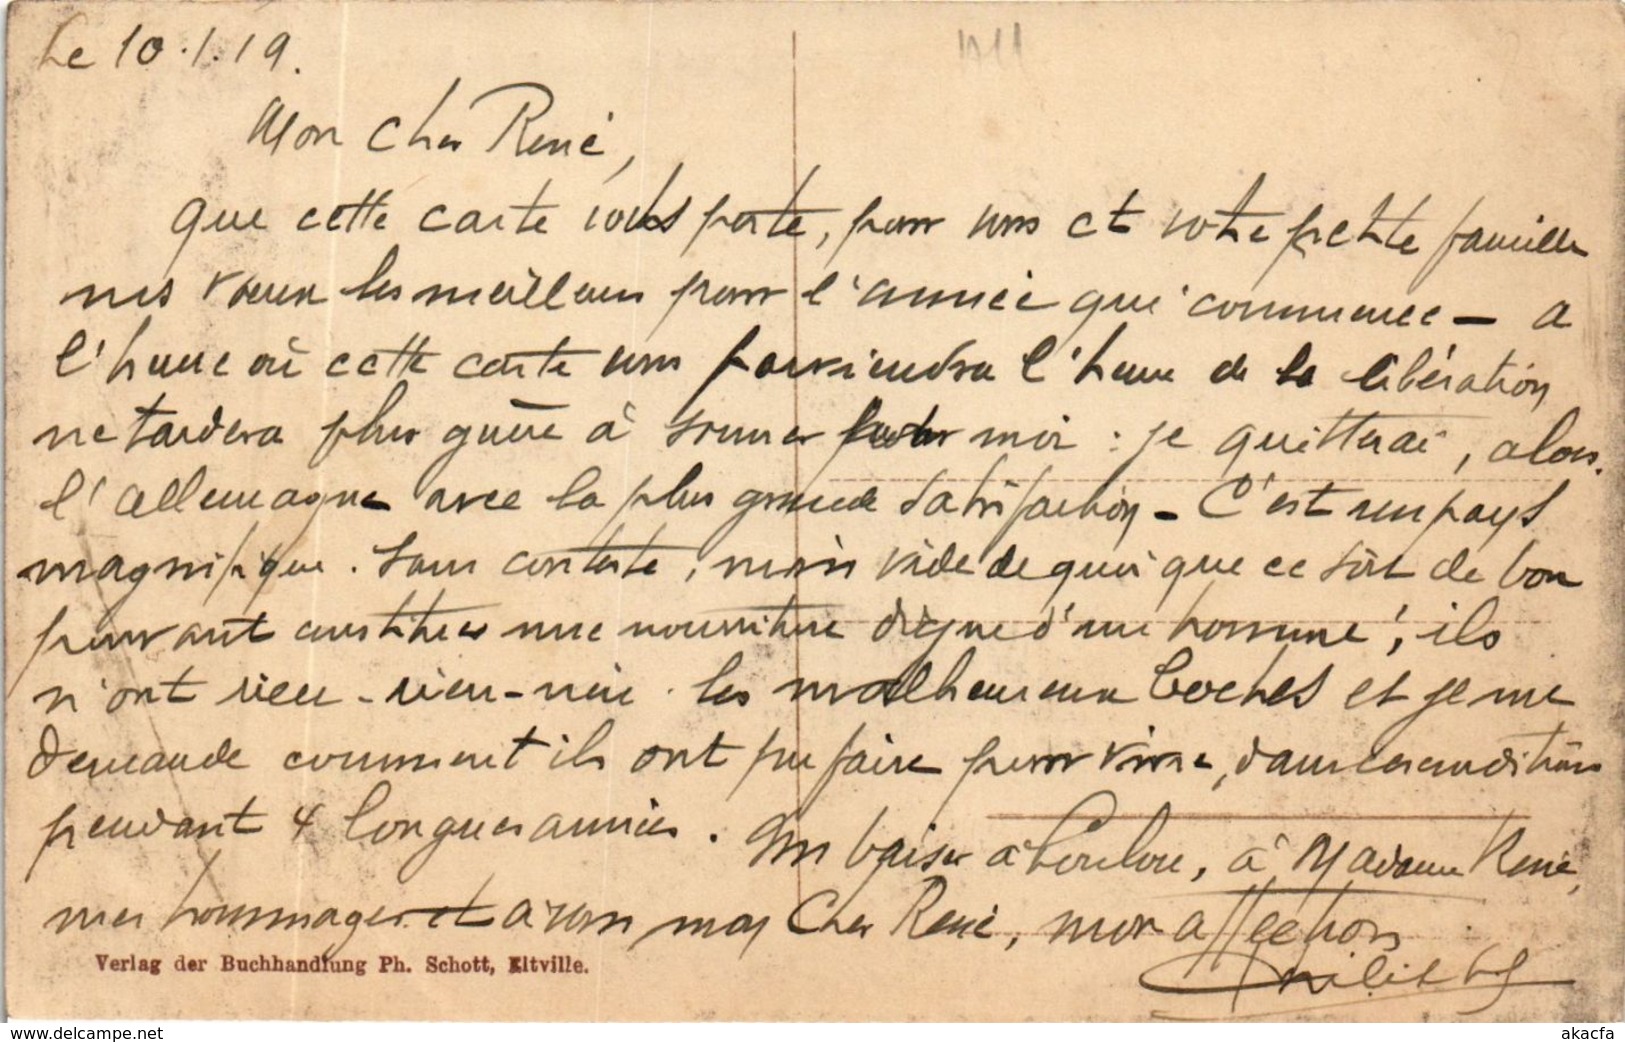 Le 10.1.19.
Mon cher René,
que cette carte vous porte, pour vous et votre petite famille
mes vœux les meilleurs pour l'année qui commence - a
l'heure où cette carte vous parviendra l'heure de la libération
ne tardera plus guère à sonner pour moi : je quitterai, alors.
l'allemagne avec la plus grande satisfaction - C'est un pays
magnifique. sans conteste, mais vide de quoi que ce soit de bon
pouvant constituer une nourriture digne d'un homme ! ils
n'ont rien - rien - rien. les malheureux boches et je me
demande comment ils ont pu faire pour vivre, dans ces conditions
pendant 4 longues années. Un baiser à Loulou, à Madame René,
mes hommages et à vous mon Cher René, mon affection
Verlag der Buchhandlung Ph. Schott, Eltville.
www.delcampe.net
akacfa